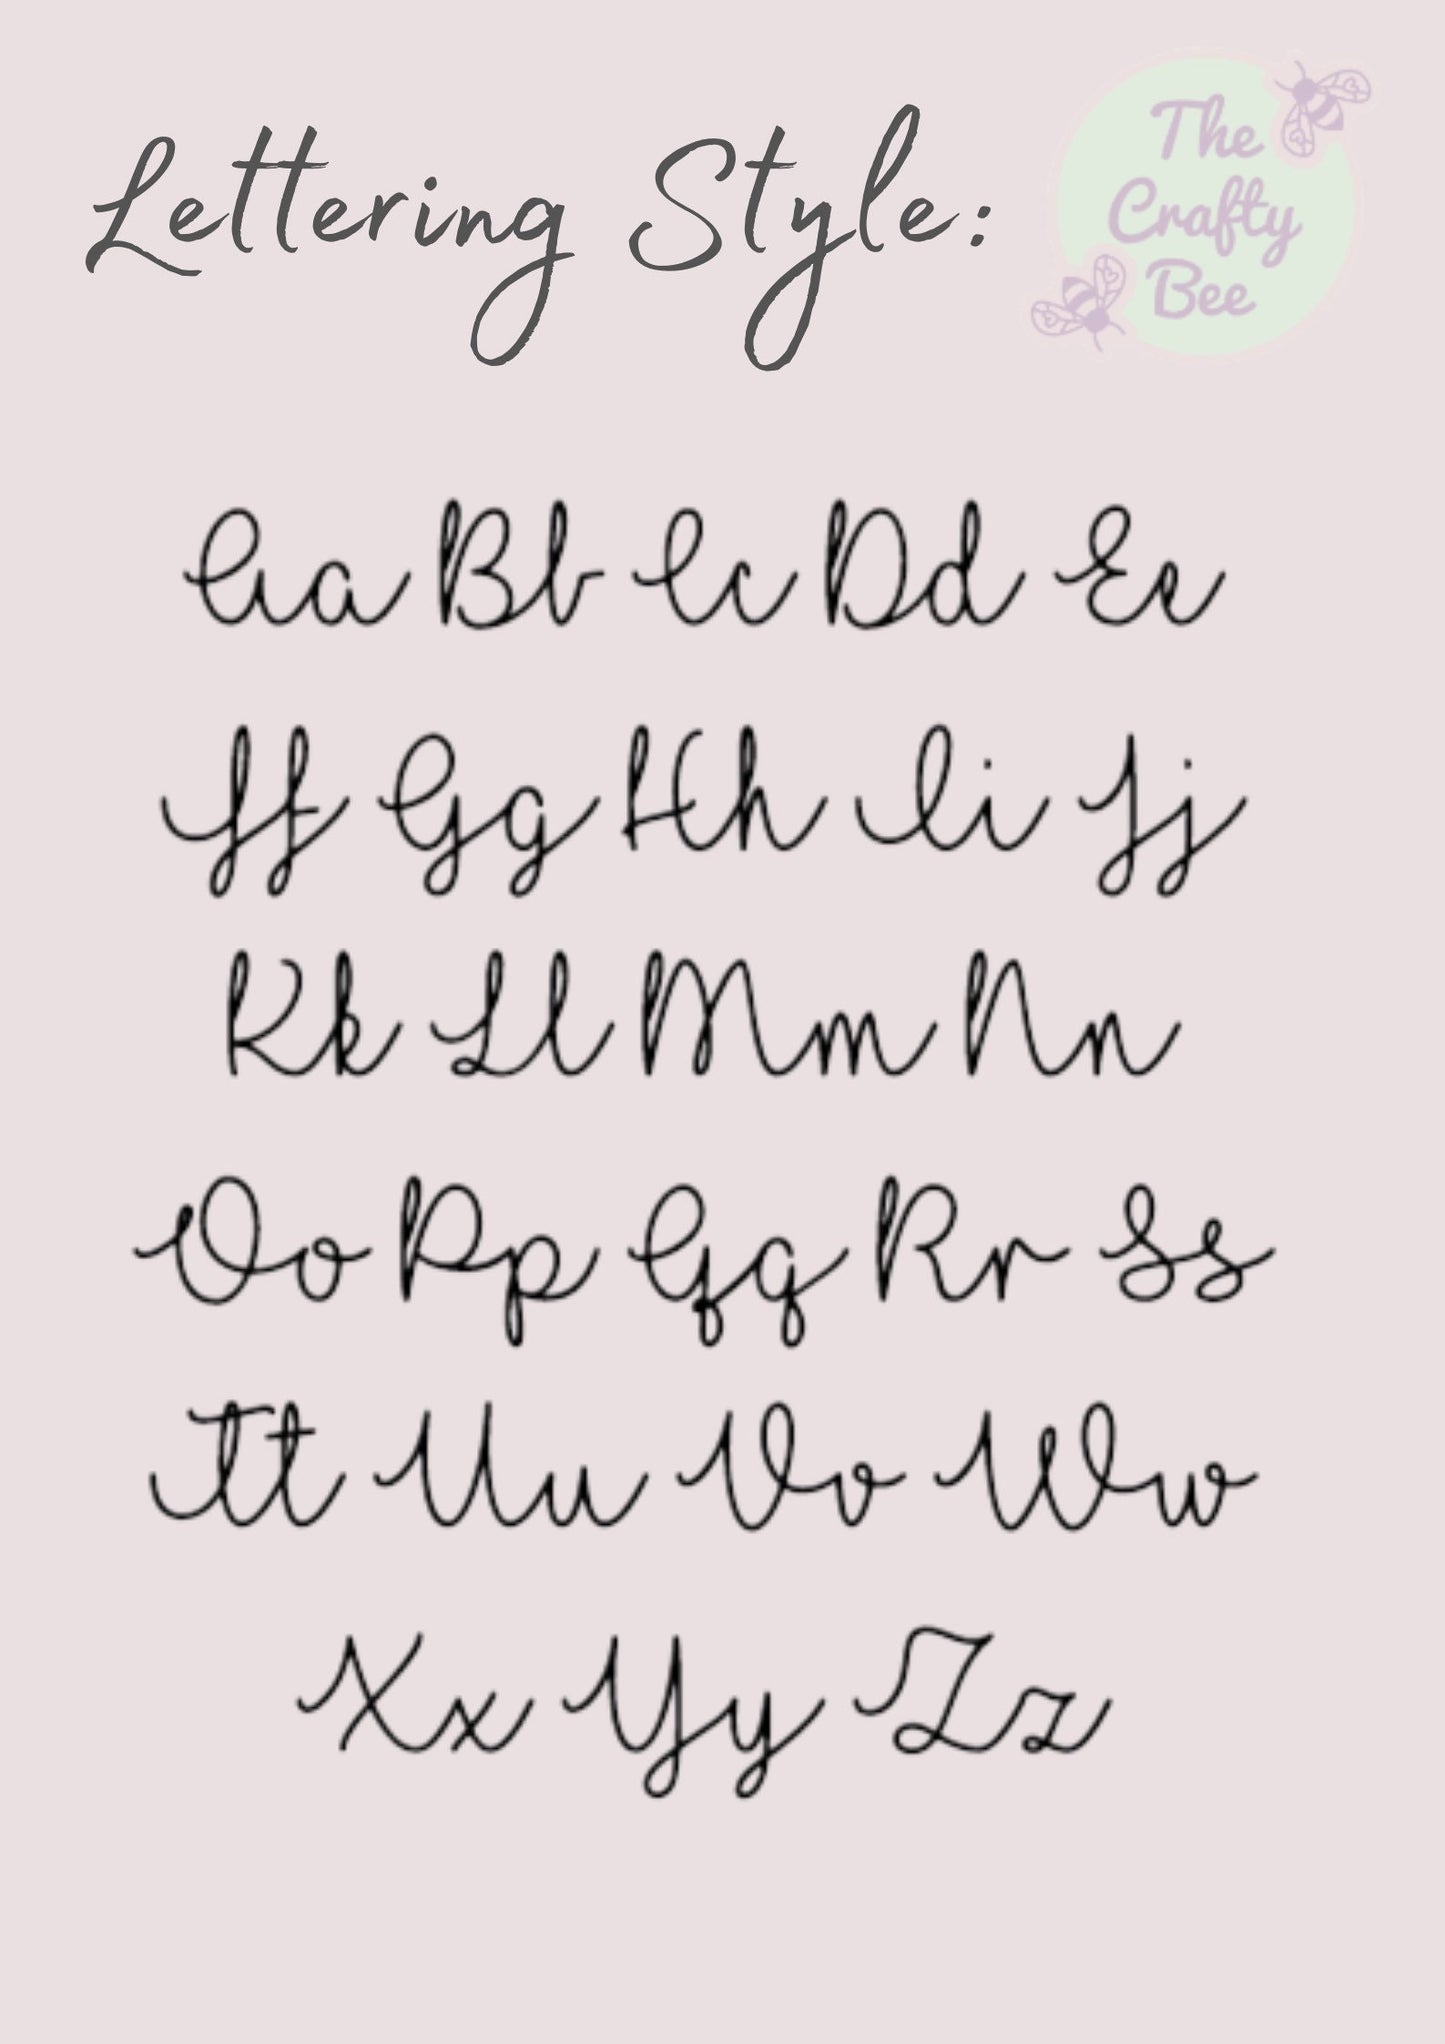 Lettering Style:
The
Crafty
Bee
Aa Bb Cc Dd Ee
Ff Gg Hh Ii Jj
Kk Ll Mm Nn
Oo Pp Qq Rr Ss
Tt Uu Vv Ww
Xx Yy Zz